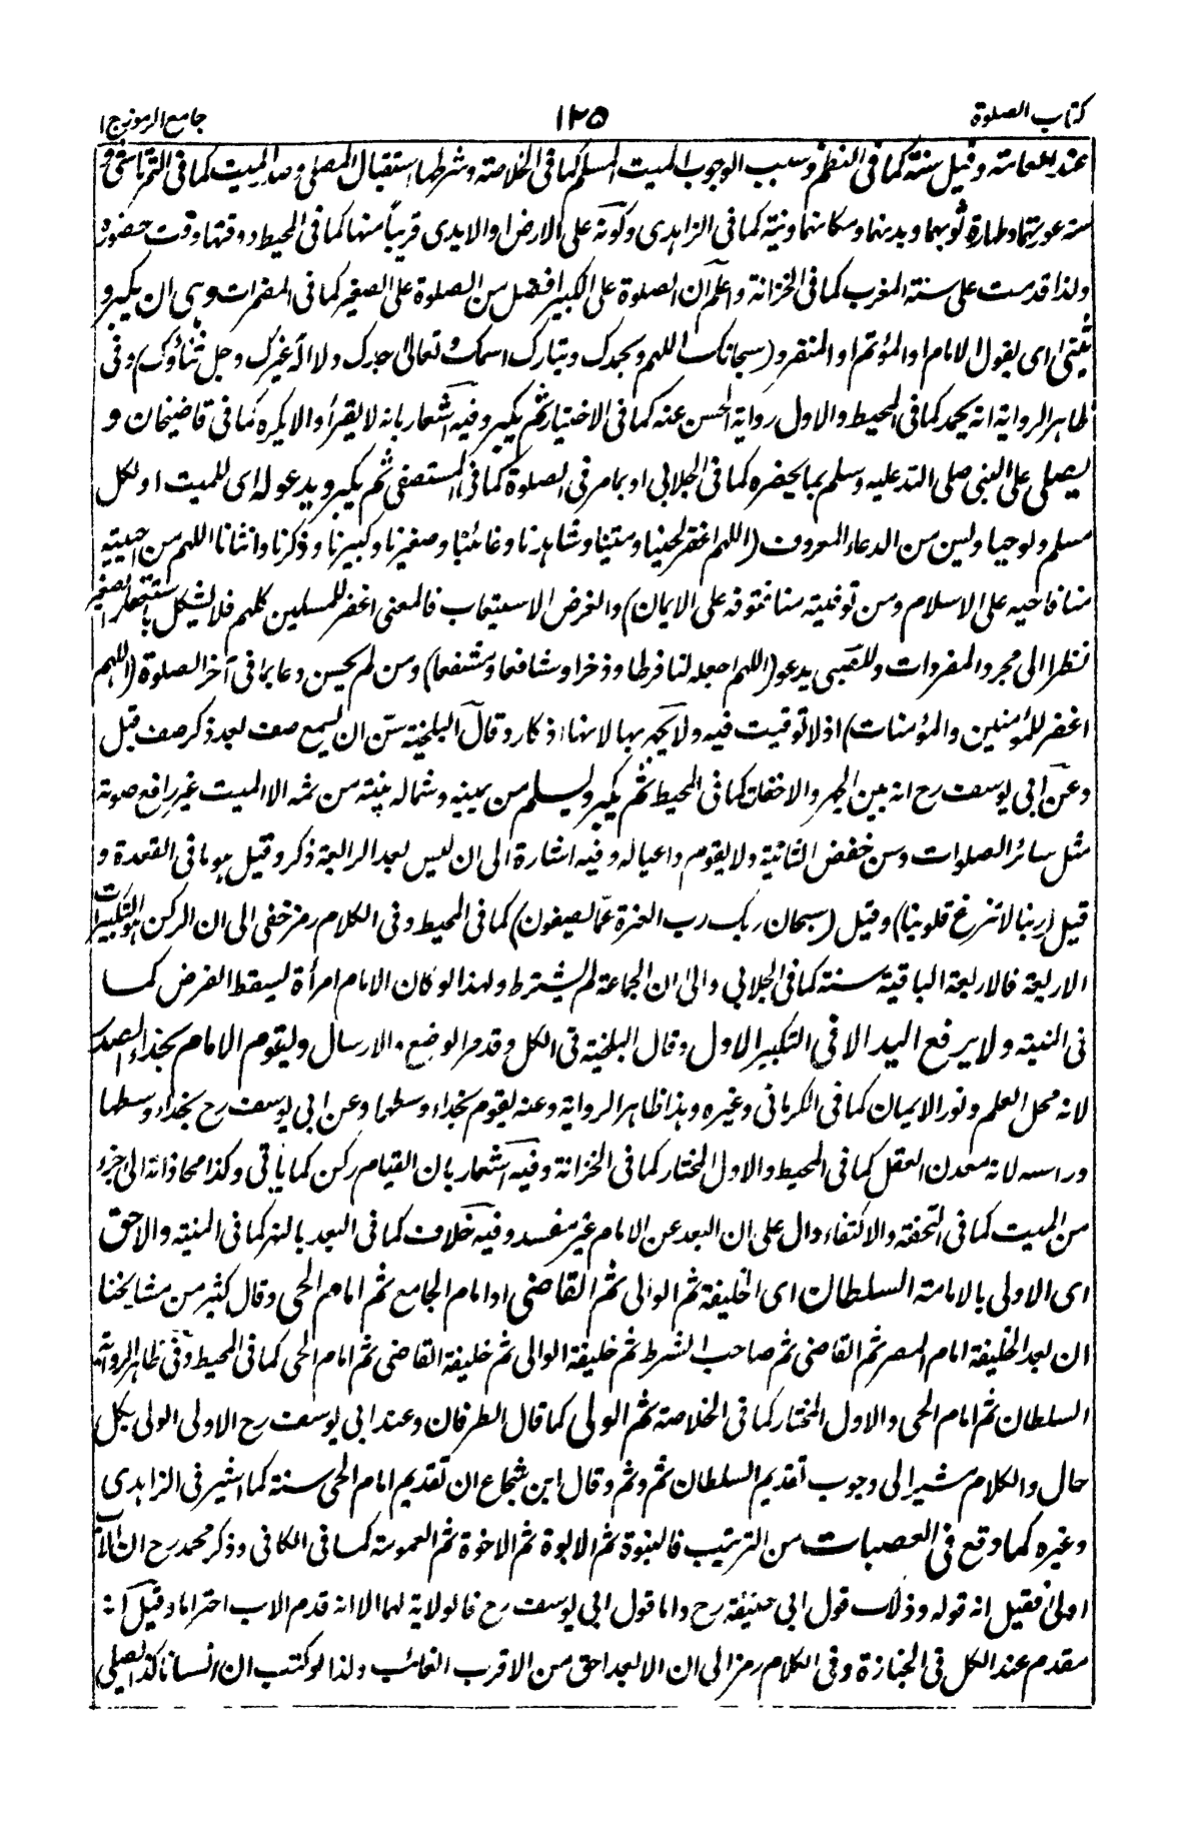 كتاب الصلوة
١٢٥
جامع الرموز ج ١
عند العامة وقيل سنة كما فى النظم وسبب الوجوب الميت المسلم كما فى الخلاصة وشرطها استقبال المصلى وصار الميت كما فى التمرتاشى و
ستر عورتهما وطهارة ثوبهما وبدنهما ومكانهما ونية كما فى الزاهدى وكونه على الارض او الايدى قريباً منها كما فى المحيط ووقتها وقت حضوره
ولذا قدمت على سنة المغرب كما فى الخزانة واعلم ان الصلوة على الكبير افضل من الصلوة على الصغير كما فى المضمرات وهى ان يكبر و
يثنى اى يقول الامام او المؤتم او المنفرد (سبحانك اللهم وبحمدك وتبارك اسمك وتعالى جدك ولا اله غيرك وجل ثناؤك) وفى
ظاهر الرواية انه يحمد كما فى المحيط والاول رواية الحسن عنه كما فى الاختيار ثم يكبر وفيه اشعار بانه لا يقرأ والا يكره كما فى قاضيخان و
يصلى على النبى صلى الله عليه وسلم بما يحضره كما فى الجلابى او بما مر فى الصلوة كما فى المستصفى ثم يكبر ويدعو له اى للميت او لكل
مسلم ولو حيا وليس من الدعاء المعروف (اللهم اغفر لحينا وميتنا وشاهدنا وغائبنا وصغيرنا وكبيرنا وذكرنا وانثانا اللهم من احييته
منا فاحيه على الاسلام ومن توفيته منا فتوفه على الايمان) والغرض الاستيعاب فالمعنى اغفر للمسلمين كلهم فلا يشكل باستغفار الصغير
نظرا الى مجرد المفردات وللصبى يدعو (اللهم اجعله لنا فرطا وذخرا وشافعا ومشفعا) ومن لم يحسن دعا بما فى آخر الصلوة (اللهم
اغفر للمؤمنين والمؤمنات) اذ لا توقيت فيه ولا يجهر بها لانها اذكار وقال البلخية سن ان يسمع صف بعد ذكر صف قبل
وعن ابى يوسف رح انه بين الجهر والاخفات كما فى المحيط ثم يكبر ويسلم من يمينه وشماله بنية من ثمه الا الميت غير رافع صوته
مثل سائر الصلوات ومن خفض الثانية ولا يقوم داعيا له وفيه اشارة الى ان ليس بعد الرابعة ذكر وقيل هو ما فى القعدة و
قيل (ربنا لا تزغ قلوبنا) وقيل (سبحان ربك رب العزة عما يصفون) كما فى المحيط وفى الكلام رمز خفى الى ان الركن هو التكبيرات
الاربعة فالاربعة الباقية سنة كما فى الجلابى والى ان الجماعة لم يشترط ولهذا لو كان الامام امرأة ليسقط الفرض كما
فى المنية ولا يرفع اليد الا فى التكبير الاول وقال البلخية فى الكل وقد مر الوضع والارسال وليقوم الامام بحذاء الصدر
لانه محل العلم ونور الايمان كما فى الكرمانى وغيره وهذا ظاهر الرواية وعنه يقوم بحذاء وسطها وعن ابى يوسف رح بحذاء وسطها
وراسه لانه معدن العقل كما فى المحيط والاول المختار كما فى الخزانة وفيه اشعار بان القيام ركن كما يأتى وكذا محاذاته الى جزء
من الميت كما فى التحفة والاكتفاء دال على ان البعد عن الامام غير مفسد وفيه خلاف كما فى البعد بالنهر كما فى المنية والاحق
اى الاولى بالامامة السلطان اى الخليفة ثم الوالى ثم القاضى او امام الجامع ثم امام الحى وقال كثير من مشايخنا
ان بعد الخليفة امام المصر ثم القاضى ثم صاحب الشرط ثم خليفة الوالى ثم خليفة القاضى ثم امام الحى كما فى المحيط وفى ظاهر الرواية
السلطان ثم امام الحى والاول المختار كما فى الخلاصة ثم الولى كما قال الطرفان وعند ابى يوسف رح الاولى الولى بكل
حال والكلام مشير الى وجوب تقديم السلطان ثم وثم وقال ابن شجاع ان تقديم امام الحى سنة كما اشير فى الزاهدى
وغيره كما وقع فى العصبات من الترتيب فالبنوة ثم الابوة ثم الاخوة ثم العمومة كما فى الكافى وذكر محمد رح ان الاب
اولى فقيل انه قوله وذلك قول ابى حنيفة رح واما قول ابى يوسف رح فالولاية لهما الا انه قدم الاب احتراما وقيل انه
مقدم عند الكل فى الجنازة وفى الكلام رمز الى ان الابعد احق من الاقرب الغائب ولذا لو كتب ان انسانا كذا ليصلى